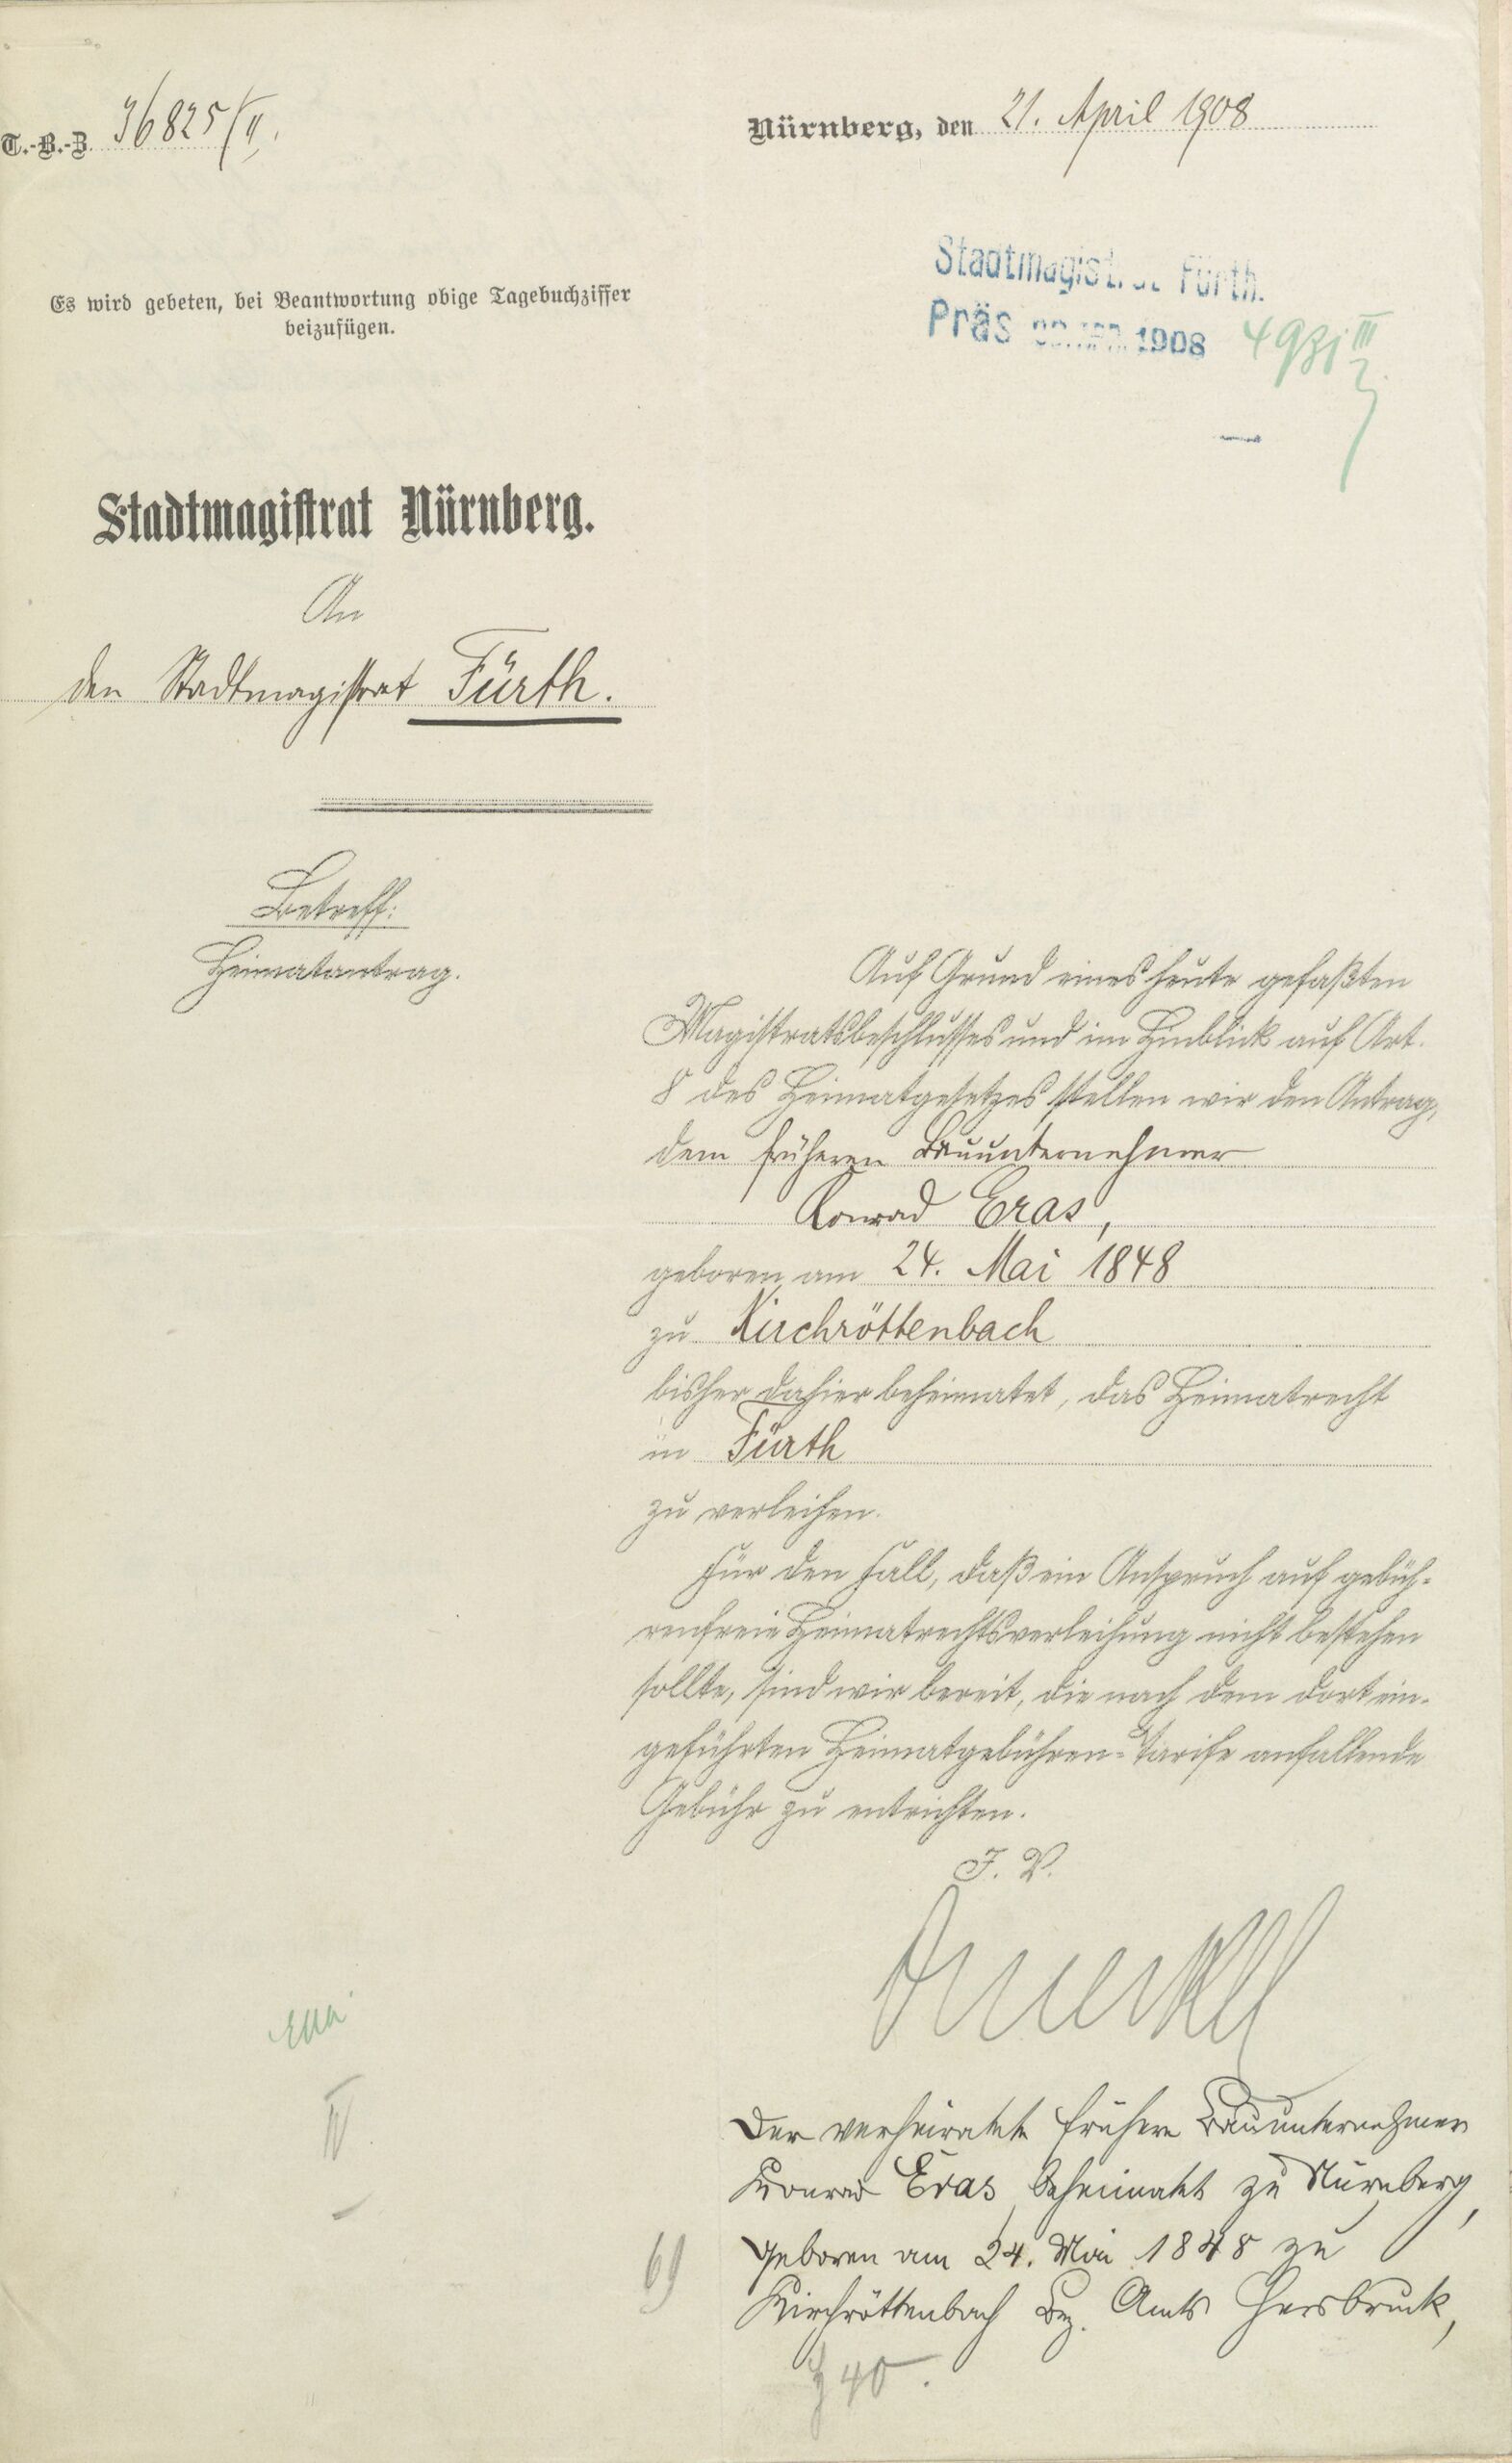 T.-B.-Z. 36825/II.
Nürnberg, den 21. April 1908
Es wird gebeten, bei Beantwortung obige Tagebuchziffer
beizufügen.
Stadtmagistrat Fürth.
Präs 1908
Stadtmagistrat Nürnberg.
An
den Stadtmagistrat Fürth.
Betreff:
Heimatantrag.
Auf Grund eines heute gefaßten
Magistratsbeschlusses und im Hinblick auf Art.
8 des Heimatgesetzes stellen wir den Antrag,
dem früheren Bauunternehmer
Konrad Eras,
geboren am 24. Mai 1848
zu Kirchröttenbach
bisher dahier beheimatet, das Heimatrecht
in Fürth
zu verleihen.
Für den Fall, daß ein Anspruch auf gebüh-
renfreie Heimatrechtsverleihung nicht bestehen
sollte, sind wir bereit, die nach dem dort ein-
geführten Heimatgebühren-Tarife anfallende
Gebühr zu entrichten.
J. V.
IV
Der verheiratete frühere Bauunternehmer
Konrad Eras beheimatet zu Nürnberg,
geboren am 24. Mai 1848 zu
69
Kirchröttenbach Bez. Amts Hersbruck,
40.